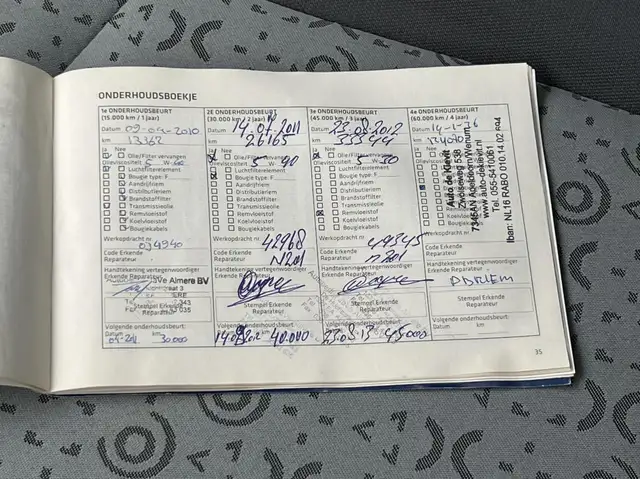 ONDERHOUDSBOEKJE
1e ONDERHOUDSBEURT
(15.000 km / 1 jaar)
Datum 09-04-2010
km 13362
Ja Nee
Olie/Filter vervangen
Olieviscositeit 5 W-
Luchtfilterelement
Bougie type:
Aandrijfriem
Distributieriem
Brandstoffilter
Transmissieolie
Remvloeistof
Koelvloeistof
Bougiekabels
Werkopdracht nr.
Code Erkende
Reparateur
Handtekening vertegenwoordiger
Erkende Reparateur
Ve Almere BV
Stempel Erkende
Reparateur
Volgende onderhoudsbeurt:
Datum km
30.000
2E ONDERHOUDSBEURT
(30.000 km / 2 jaar)
Datum 14.07.2011
km 26165
Ja Nee
Olie/Filter vervangen
Olieviscositeit 5 W- 40
Luchtfilterelement
Bougie type: F
Aandrijfriem
Distributieriem
Brandstoffilter
Transmissieolie
Remvloeistof
Koelvloeistof
Bougiekabels
Werkopdracht nr.
42968
Code Erkende
Reparateur N201
Handtekening vertegenwoordiger
Erkende Reparateur
Stempel Erkende
Reparateur
Volgende onderhoudsbeurt:
40.000
3e ONDERHOUDSBEURT
(45.000 km / 3 jaar)
Datum 23.08.2012
km 33544
Ja Nee
Olie/Filter vervangen
Olieviscositeit 5 W- 30
Luchtfilterelement
Bougie type: F
Aandrijfriem
Distributieriem
Brandstoffilter
Transmissieolie
Remvloeistof
Koelvloeistof
Bougiekabels
Werkopdracht nr.
49345
Code Erkende
Reparateur N201
Handtekening vertegenwoordiger
Erkende Reparateur
Stempel Erkende
Reparateur
Volgende onderhoudsbeurt:
23.08.13 45.000
4e ONDERHOUDSBEURT
(60.000 km / 4 jaar)
Datum 14-1-
km
Ja Nee
Auto de Kleijn
Zwolseweg 538
7345AN Apeldoorn/Wenum
www.auto-dekleijn.nl
Iban: NL16 RABO 0110.14.02.694
Code Erkende
Reparateur
Handtekening vertegenwoordiger
Erkende Reparateur
Stempel Erkende
Reparateur
Volgende onderhoudsbeurt:
Datum km
35